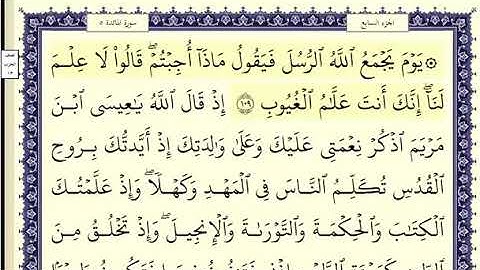 سورة المائدة ٥
الجزء السابع
۞ يَوْمَ يَجْمَعُ ٱللَّهُ ٱلرُّسُلَ فَيَقُولُ مَاذَآ أُجِبْتُمْ ۖ قَالُوا۟ لَا عِلْمَ
لَنَآ ۖ إِنَّكَ أَنتَ عَلَّٰمُ ٱلْغُيُوبِ ١٠٩ إِذْ قَالَ ٱللَّهُ يَٰعِيسَى ٱبْنَ
مَرْيَمَ ٱذْكُرْ نِعْمَتِى عَلَيْكَ وَعَلَىٰ وَٰلِدَتِكَ إِذْ أَيَّدتُّكَ بِرُوحِ
ٱلْقُدُسِ تُكَلِّمُ ٱلنَّاسَ فِى ٱلْمَهْدِ وَكَهْلًا ۖ وَإِذْ عَلَّمْتُكَ
ٱلْكِتَٰبَ وَٱلْحِكْمَةَ وَٱلتَّوْرَىٰةَ وَٱلْإِنجِيلَ ۖ وَإِذْ تَخْلُقُ مِنَ